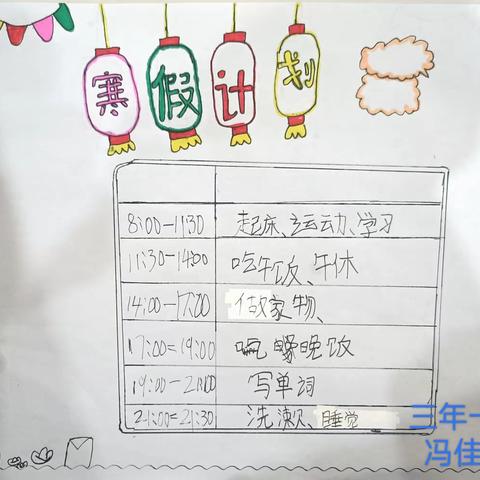 寒假计划
8:00-11:30 起床、运动、学习
11:30-14:00 吃午饭、午休
14:00-17:00 做家物、
17:00=19:00 晚饭
19:00-21:00 写单词
21:00=21:30 洗漱、睡觉
三年一
冯佳